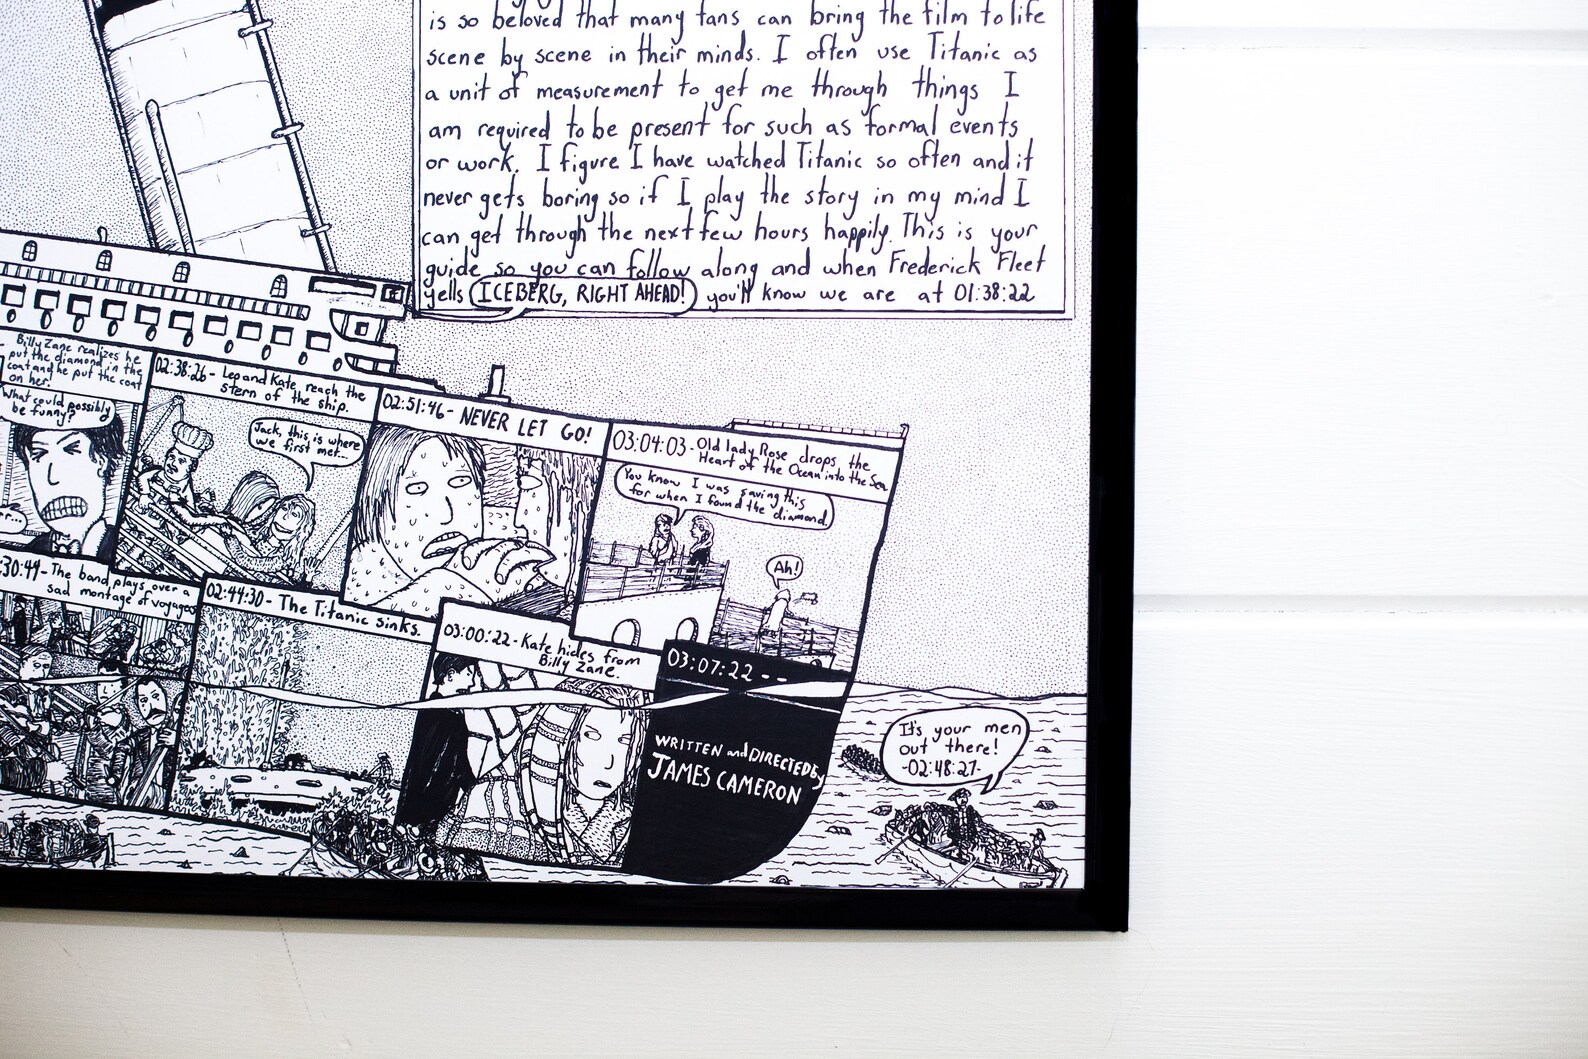 is so beloved that many fans can bring the film to life
scene by scene in their minds. I often use Titanic as
a unit of measurement to get me through things I
am required to be present for such as formal events
or work. I figure I have watched Titanic so often and it
never gets boring so if I play the story in my mind I
can get through the next few hours happily. This is your
guide so you can follow along and when Frederick Fleet
yells ICEBERG, RIGHT AHEAD! you'll know we are at 01:38:22
Billy Zane realizes he
put the diamond in the
coat and he put the coat
on her!
What could possibly
be funny?
02:38:26 - Leo and Kate reach the
stern of the ship.
Jack, this is where
we first met...
02:51:46 - NEVER LET GO!
03:04:03 - Old lady Rose drops the
Heart of the Ocean into the Sea
You know I was saving this
for when I found the diamond
Ah!
:30:44 - The band plays over a
sad montage of voyagers
02:44:30 - The Titanic sinks.
03:00:22 - Kate hides from
Billy Zane.
03:07:22 --
WRITTEN and DIRECTED by
JAMES CAMERON
It's your men
out there!
-02:48:27-